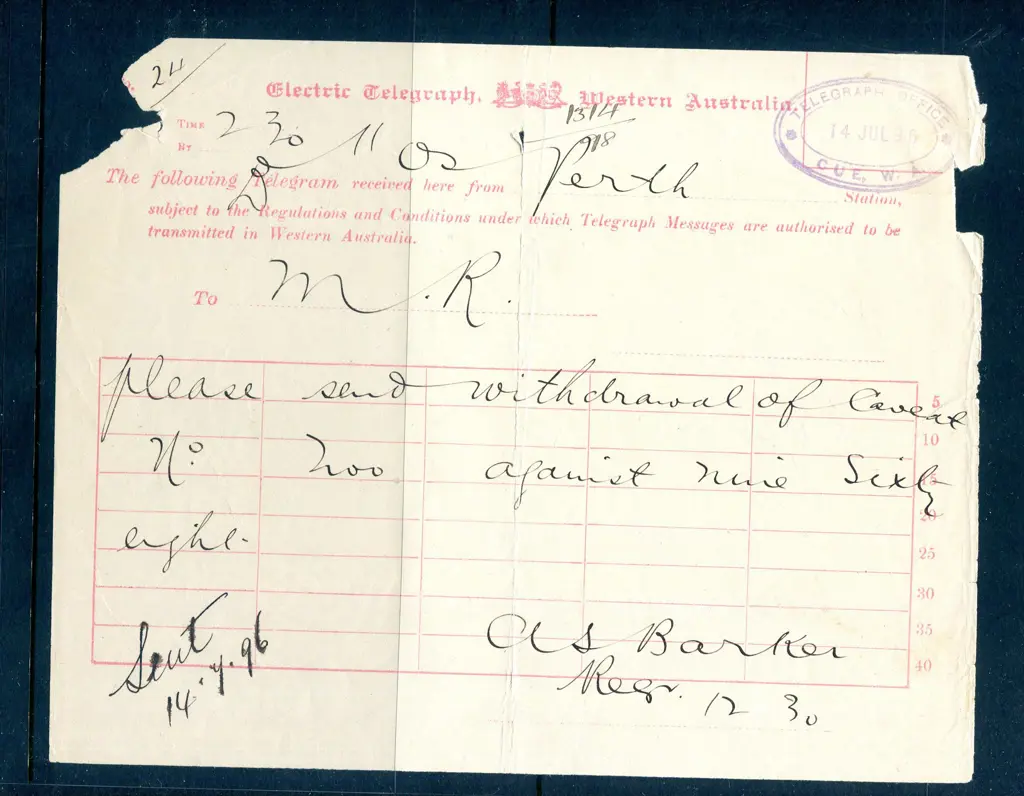 24/
Electric Telegraph, Western Australia.
TELEGRAPH OFFICE
14 JUL 96
CUE, W. A.
1314
918
TIME 2 30
BY
11 Os Perth
The following Telegram received here from Station,
subject to the Regulations and Conditions under which Telegraph Messages are authorised to be
transmitted in Western Australia.
To M. R.
please send withdrawal of Caveat 5
10
No against nine Sixty 15
20
eight. 25
30
A S Barker 35
Sent 40
14.7.96
Regr. 12 30